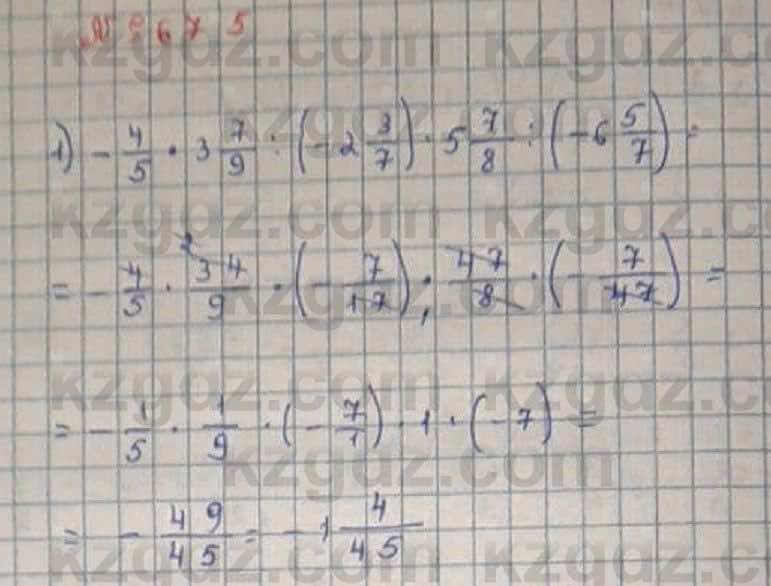 № 675
1) - 4/5 · 3 7/9 : (-2 3/7) · 5 7/8 : (-6 5/7) =
= - 4/5 · 34/9 · (- 7/17) · 47/8 · (- 7/47) =
= - 1/5 · 1/9 · (- 7/1) · 1 · (-7) =
= - 49/45 = - 1 4/45
kzgdz.com